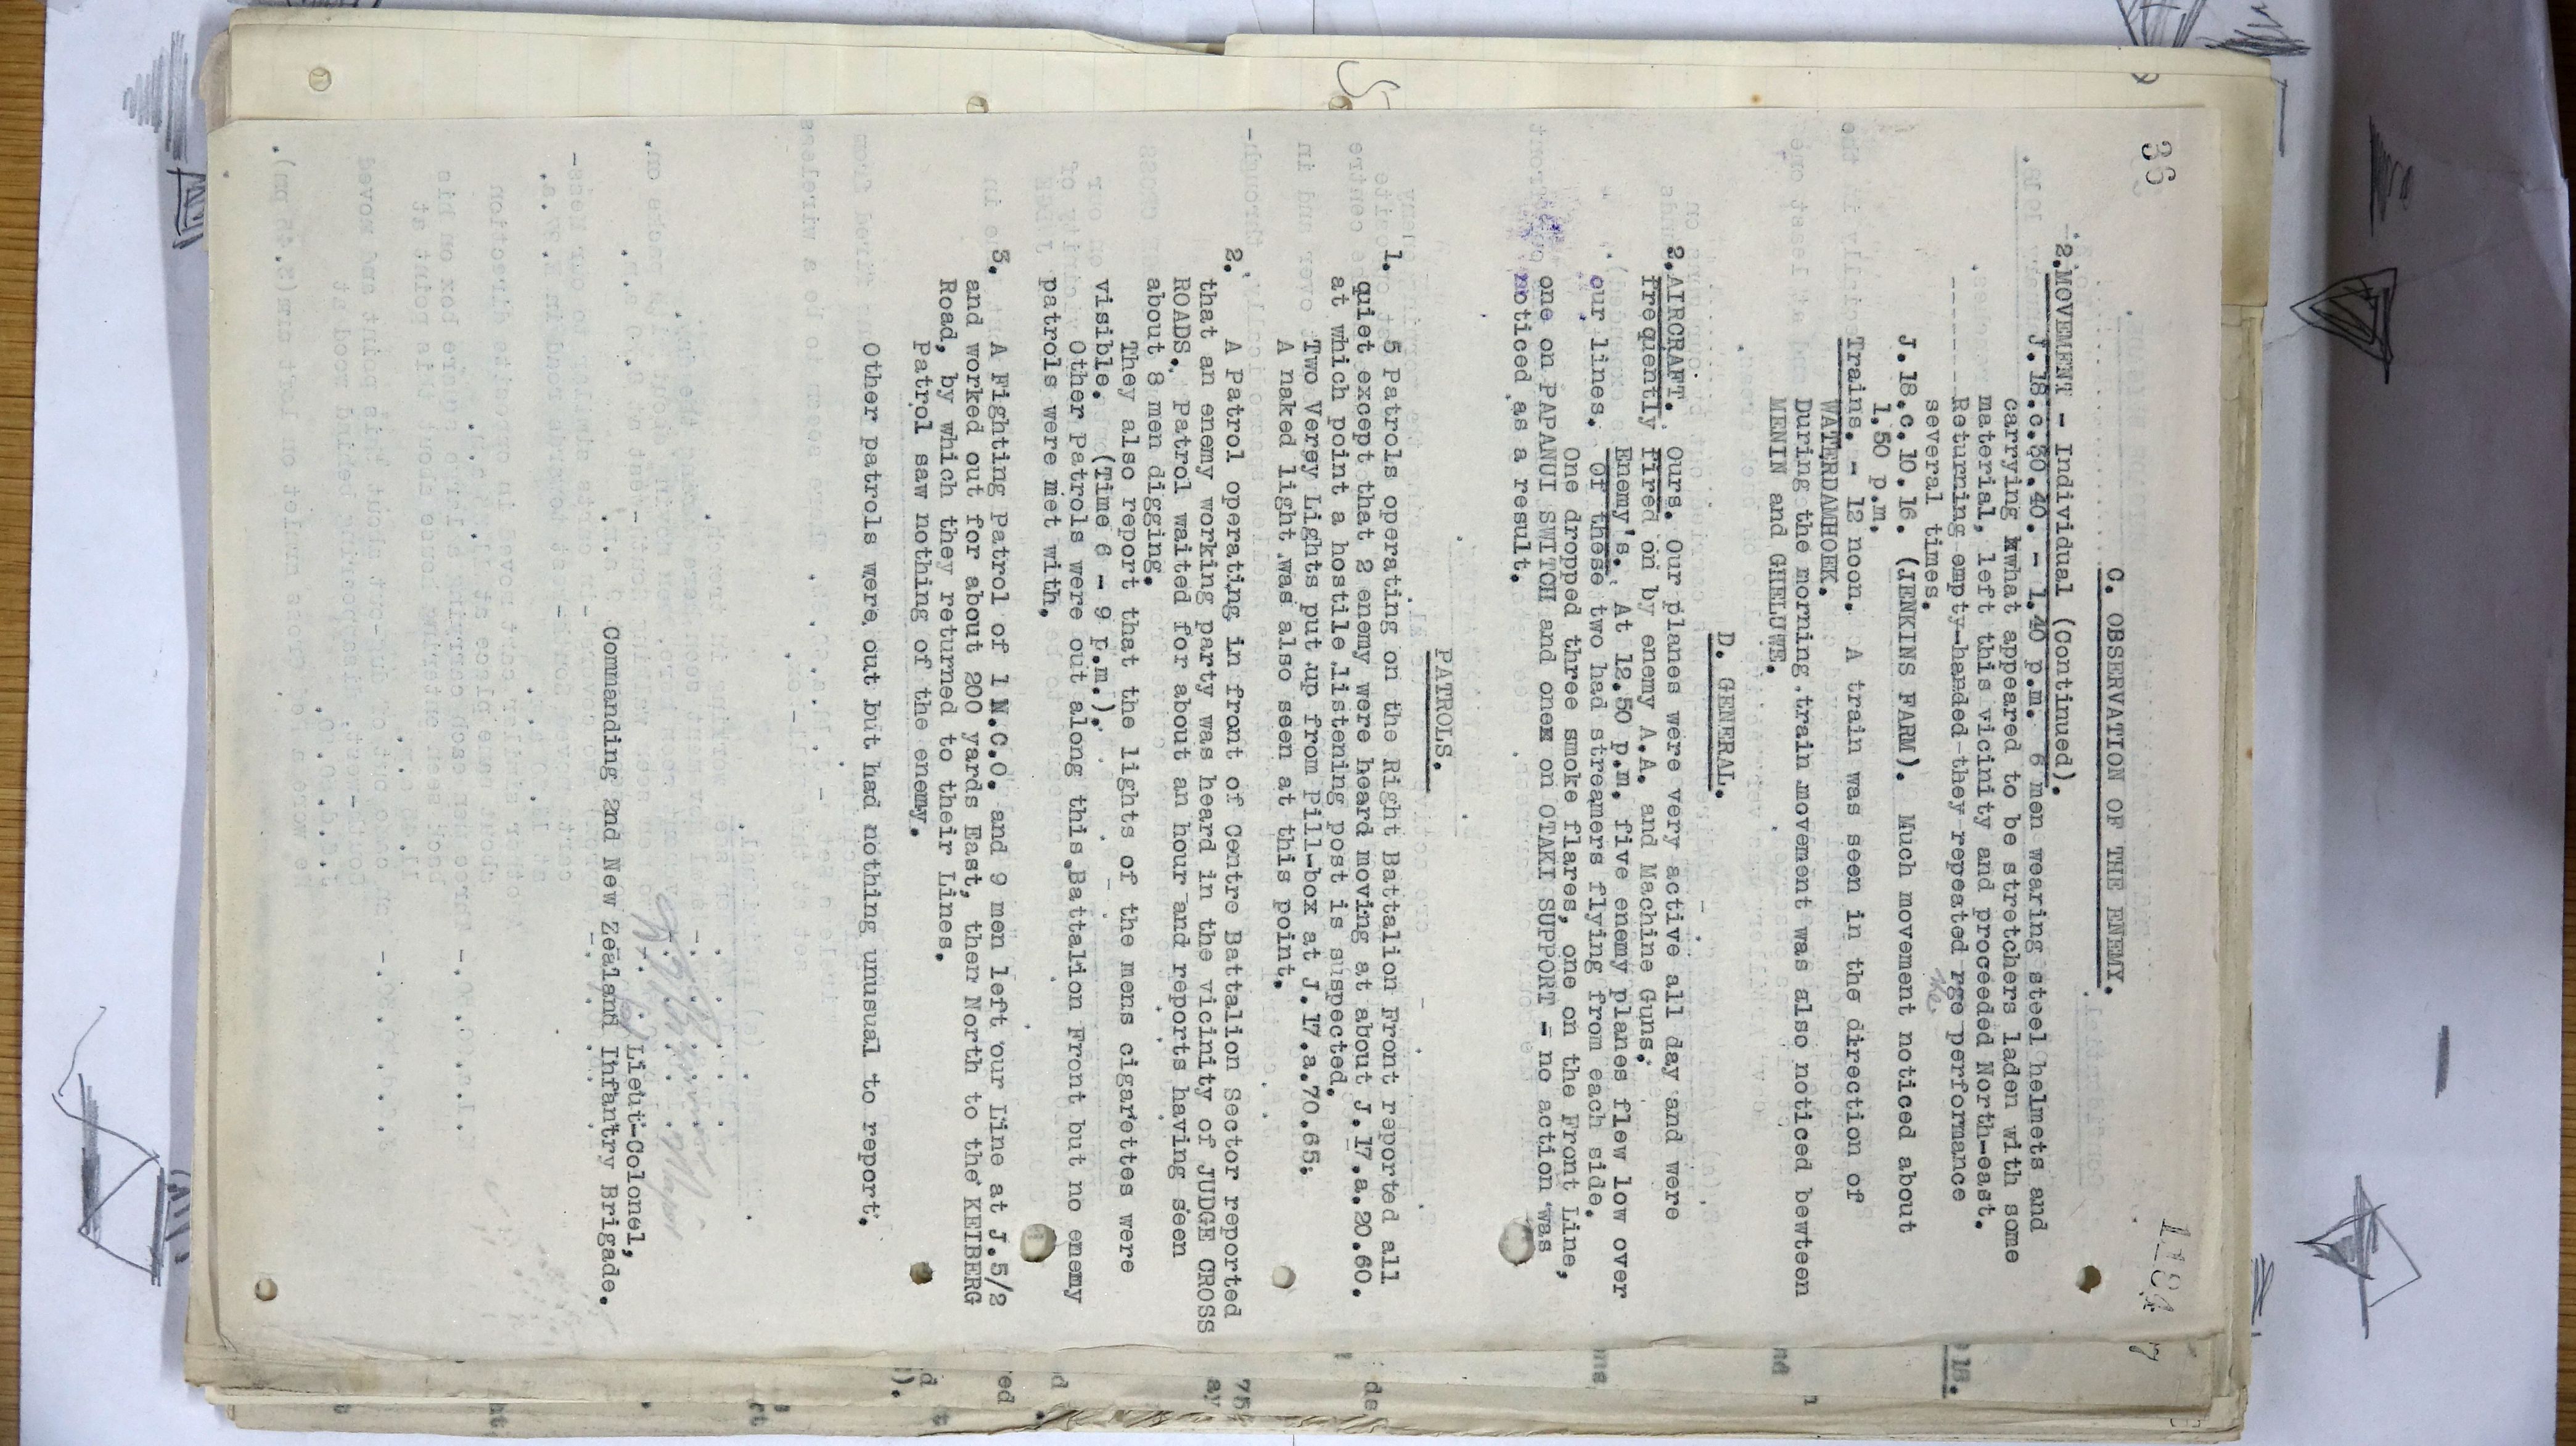 36
C. OBSERVATION OF THE ENEMY.
2.MOVEMENT - Individual (Continued).
J.18.c.30.40. - 1.40 p.m. 6 men wearing steel helmets and
carrying what appeared to be stretchers laden with some
material, left this vicinity and proceeded North-east.
Returning empty-handed they repeated the performance
several times.
J.18.c.10.16. (JENKINS FARM). Much movement noticed about
1.50 p.m.
Trains. - 12 noon. A train was seen in the direction of
WATERDAMHOEK.
During the morning train movement was also noticed bewteen
MENIN and GHELUWE.
D. GENERAL.
2.AIRCRAFT. Ours. Our planes were very active all day and were
frequently fired on by enemy A.A. and Machine Guns.
Enemy's. At 12.50 p.m. five enemy planes flew low over
our lines. Of these two had streamers flying from each side.
One dropped three smoke flares, one on the Front Line,
one on PAPANUI SWITCH and one on OTAKI SUPPORT - no action was
noticed as a result.
PATROLS.
1. 5 Patrols operating on the Right Battalion Front reported all
quiet except that 2 enemy were heard moving at about J.17.a.20.60.
at which point a hostile listening post is suspected.
Two Verey Lights put up from Pill-box at J.17.a.70.65.
A naked light was also seen at this point.
2. A Patrol operating in front of Centre Battalion Sector reported
that an enemy working party was heard in the vicinity of JUDGE CROSS
ROADS. Patrol waited for about an hour and reports having seen
about 8 men digging.
They also report that the lights of the mens cigarettes were
visible. (Time 6 - 9 p.m.).
Other Patrols were out along this Battalion Front but no enemy
patrols were met with.
3. A Fighting Patrol of 1 N.C.O. and 9 men left our Line at J.5/2
and worked out for about 200 yards East, then North to the KEIBERG
Road, by which they returned to their Lines.
Patrol saw nothing of the enemy.
Other patrols were out but had nothing unusual to report.
Major
Lieut-Colonel,
Commanding 2nd New Zealand Infantry Brigade.